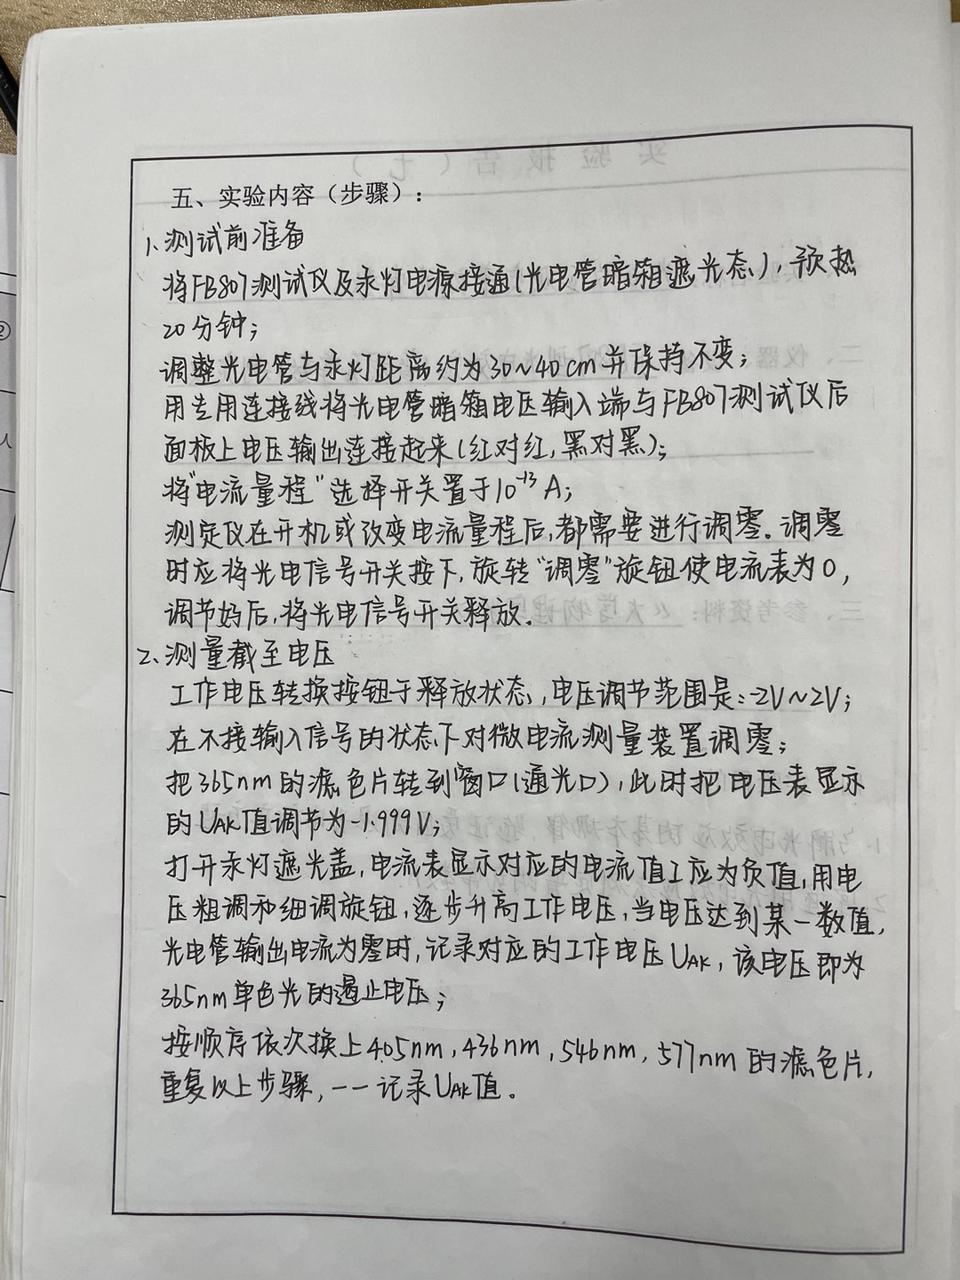 五、实验内容（步骤）：
1、测试前准备
将FB807测试仪及汞灯电源接通（光电管暗箱遮光态），预热
20分钟；
调整光电管与汞灯距离约为30~40cm并保持不变；
用专用连接线将光电管暗箱电压输入端与FB807测试仪后
面板上电压输出连接起来（红对红，黑对黑）；
将“电流量程”选择开关置于10⁻¹³A；
测定仪在开机或改变电流量程后，都需要进行调零。调零
时应将光电信号开关按下，旋转“调零”旋钮使电流表为0，
调节好后，将光电信号开关释放.
2、测量截至电压
工作电压转换按钮于释放状态，电压调节范围是：-2V~2V；
在不接输入信号的状态下对微电流测量装置调零；
把365nm的滤色片转到窗口（通光口），此时把电压表显示
的UAK值调节为-1.999V；
打开汞灯遮光盖，电流表显示对应的电流值I应为负值，用电
压粗调和细调旋钮，逐步升高工作电压，当电压达到某一数值，
光电管输出电流为零时，记录对应的工作电压UAK，该电压即为
365nm单色光的遏止电压；
按顺序依次换上405nm，436nm，546nm，577nm的滤色片，
重复以上步骤，一一记录UAK值。